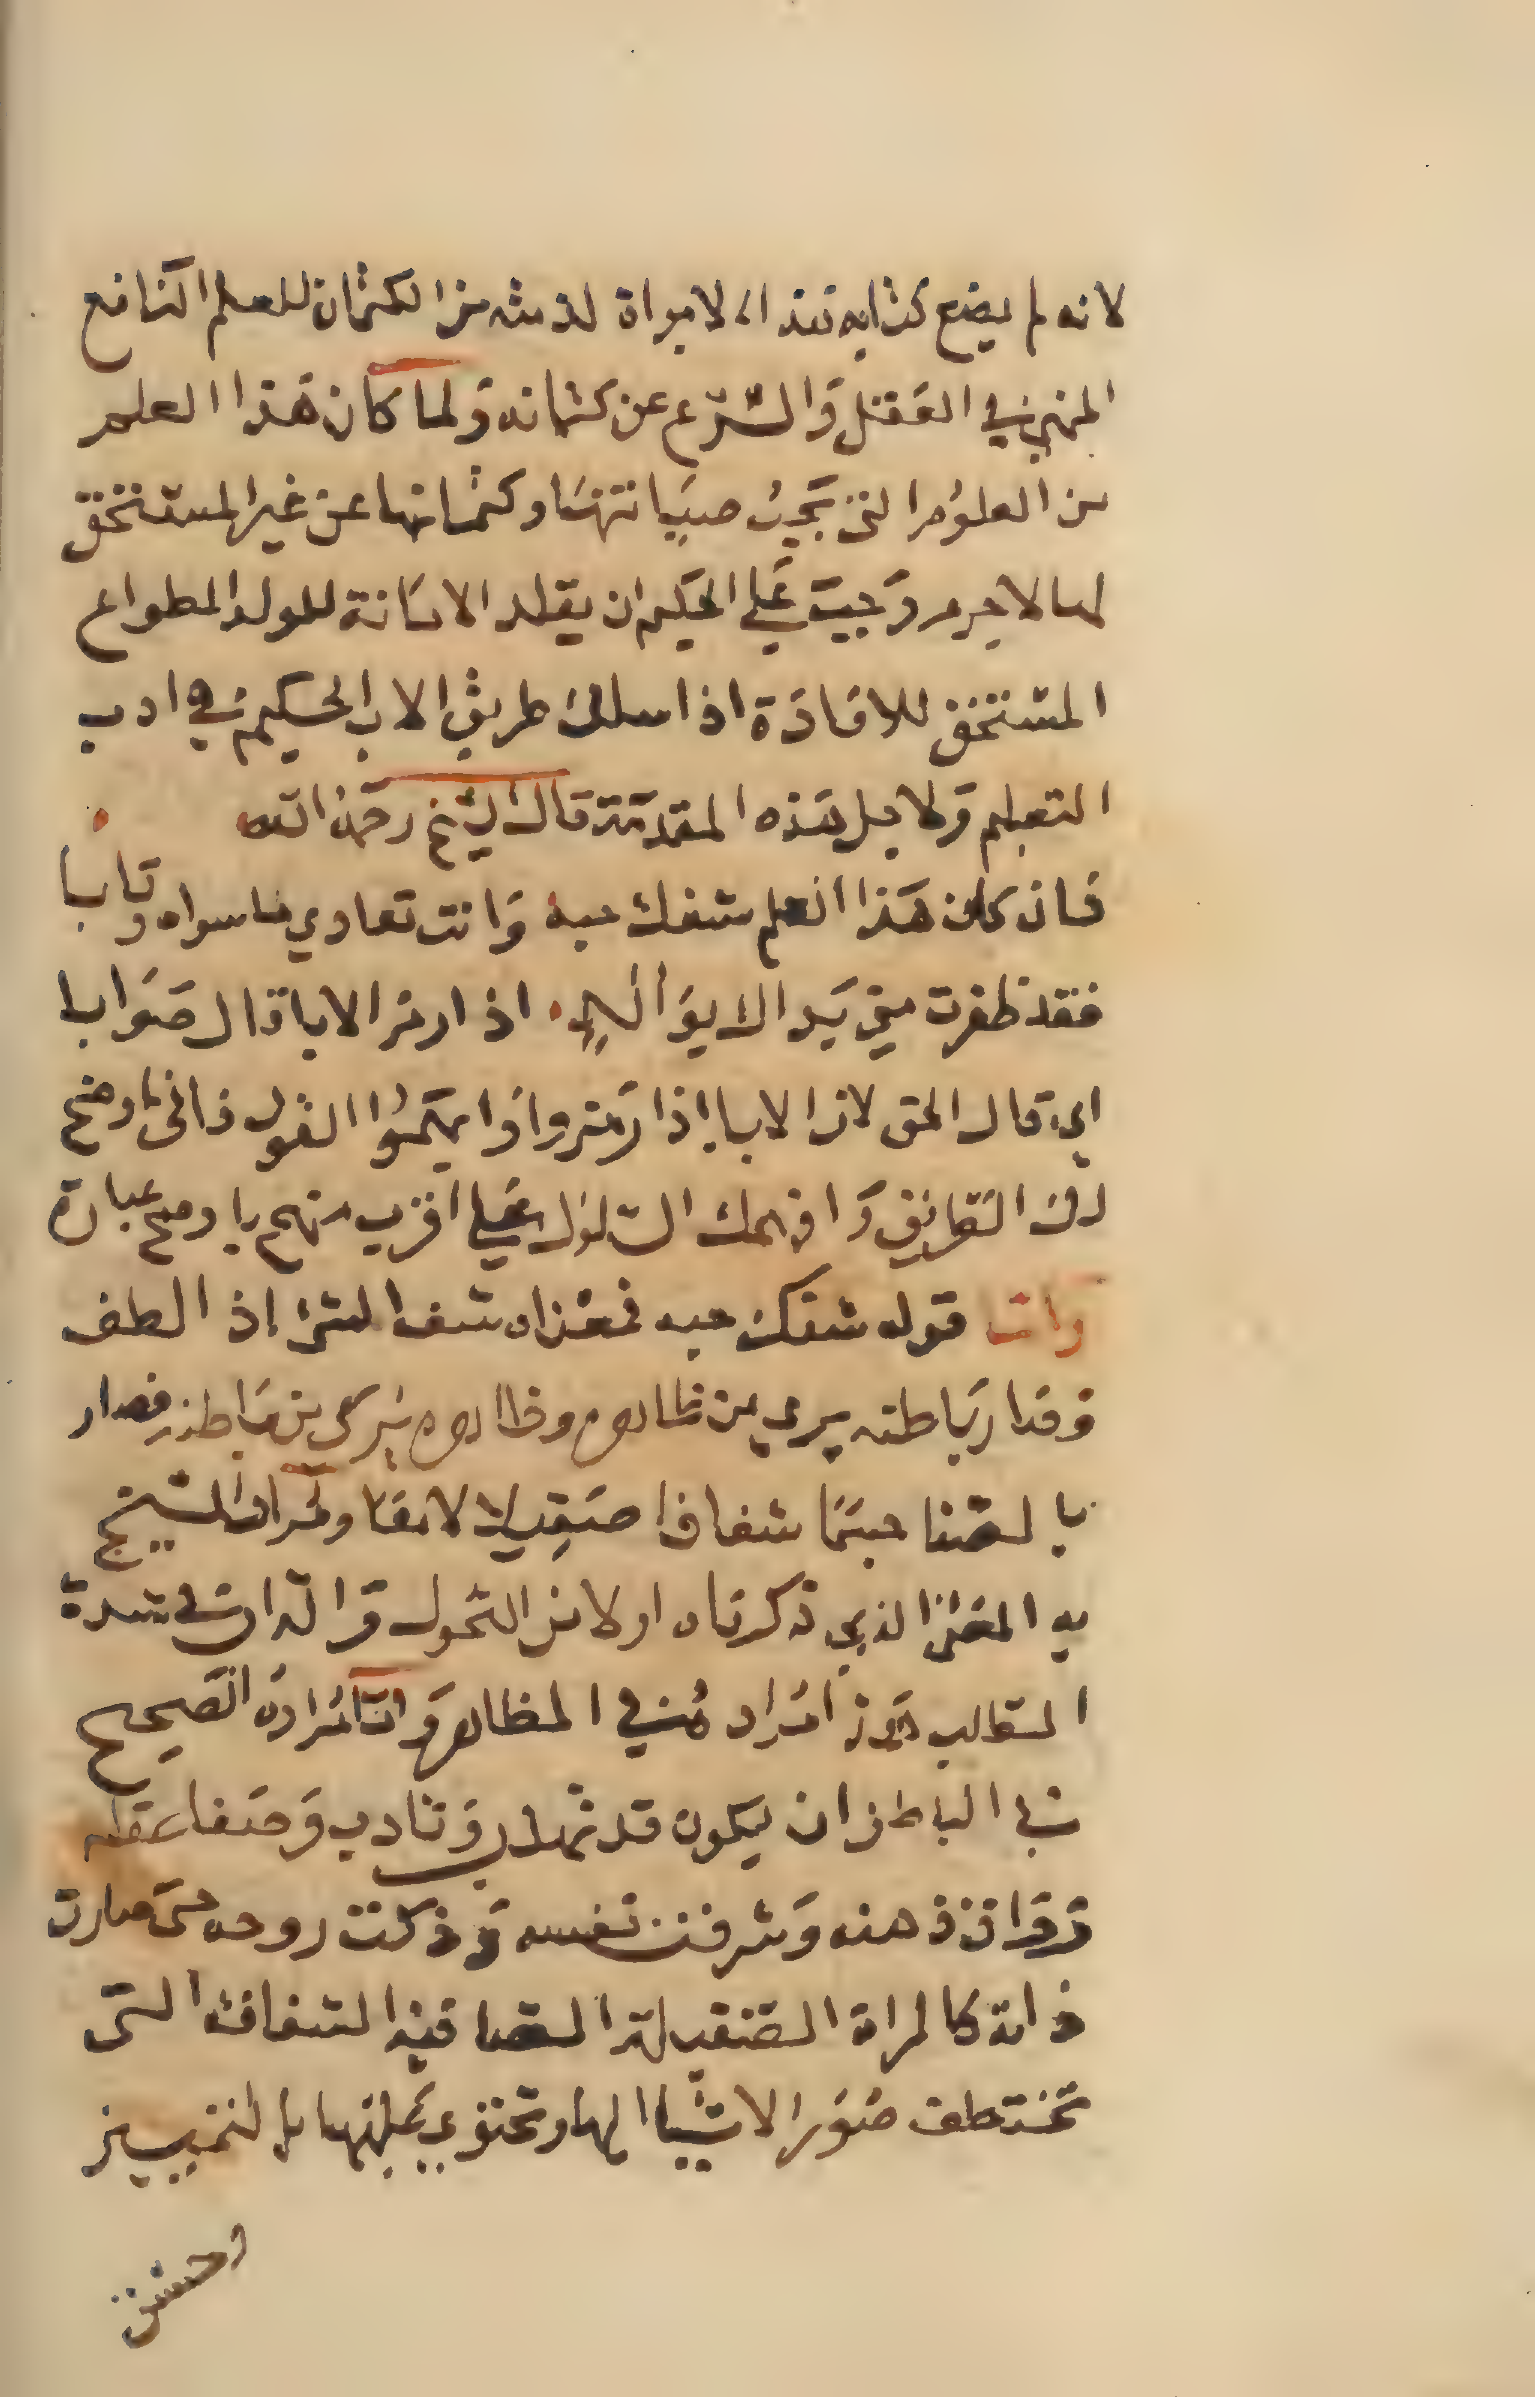 لانه لم يضع كتابه هذا الا لابراة لذمته من الكتمان للعلم النافع
المنهى في العقل وَالشرع عن كتمانه وَلما كان هَذا العلم
من العلوُم التى يجَبُ صيَانتهَا وكتمانها عن غير المستحق
لها لاجرم وَجبَ عَلى الحكيم ان يقلد الامَانة للولد المطواع
المستحق للافادَة اذا سلك طريق الاب الحكيم في ادب
التعليم وَلاجل هَذه المقدمَة قال الشيخ رحمَهُ الله
فان كان هَذا العلم شفك حبه وَانت تعادي ما سواه وتابا
فقد ظفرت مني يَد الايوَا له اذا رمز الابا قال صَوَابا
اي قال الحق لان الابا اذا رَمزوا وَابهَمُوا القول فانى اوضح
لك الطريق وَافهمك السلوك عَلى اقرب منهج باوضح عبارة
وامَّا قوله شفك حبه فمعناه شف الشئ اذ الطف
وَصَار بَاطنه يرى من ظاهره وظاهره يُرى من بَاطنه فصار
بالصفا جسَمًا شفافا صَقِيلا لامعَا ومُراد الشيخ
به المعنى الذي ذكرناه اولا من النحول وَالذوبان في شدة
الطالب هَذا مُرَاده في المظاهر وَامَّا مُرَادهُ الصَحيح
في الباطن ان يكون قد تهذب وَتادب وَصَفا عَقله
وَرَاق ذهنه وَشرفت نفسه وَذكت روحه حتى صَارت
ذاته كالمراة الصَقيلة الصَافيَة الشفافة التى
تختطف صُوَر الاشيَا اليها وتحتوي عَليهَا بالتمييز
احسن